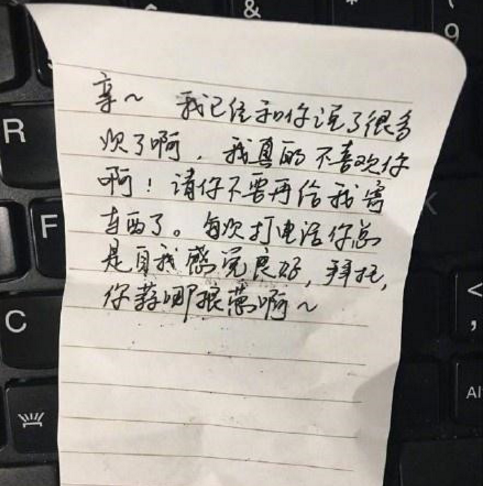 亲～ 我已经和你说了很多
次了啊，我真的不喜欢你
啊！请你不要再给我寄
东西了。每次打电话你总
是自我感觉良好，拜托，
你蒜哪根葱啊～
&
9
R
F
C
K
<
,
Al